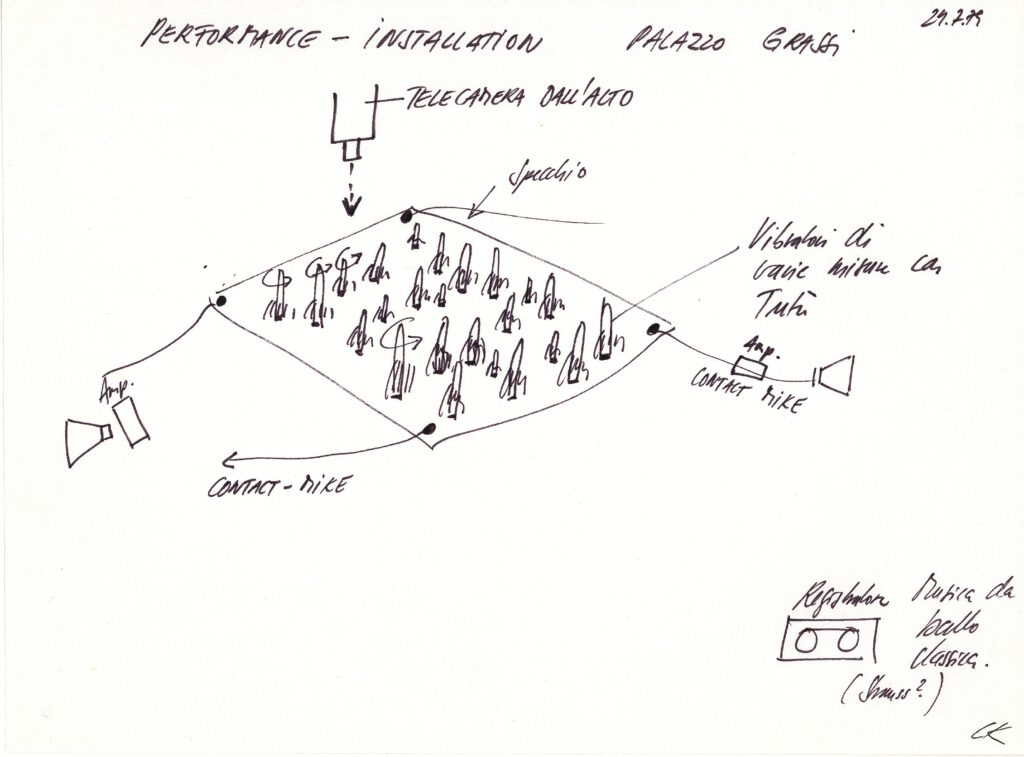 24.7.79
PERFORMANCE - INSTALLATION PALAZZO GRASSI
TELECAMERA DALL'ALTO
Specchio
Vibratori di
varie misure con
Tutù
Amp.
CONTACT MIKE
Amp.
CONTACT-MIKE
Registratore
Musica da
ballo
classica.
(Strauss?)
CK